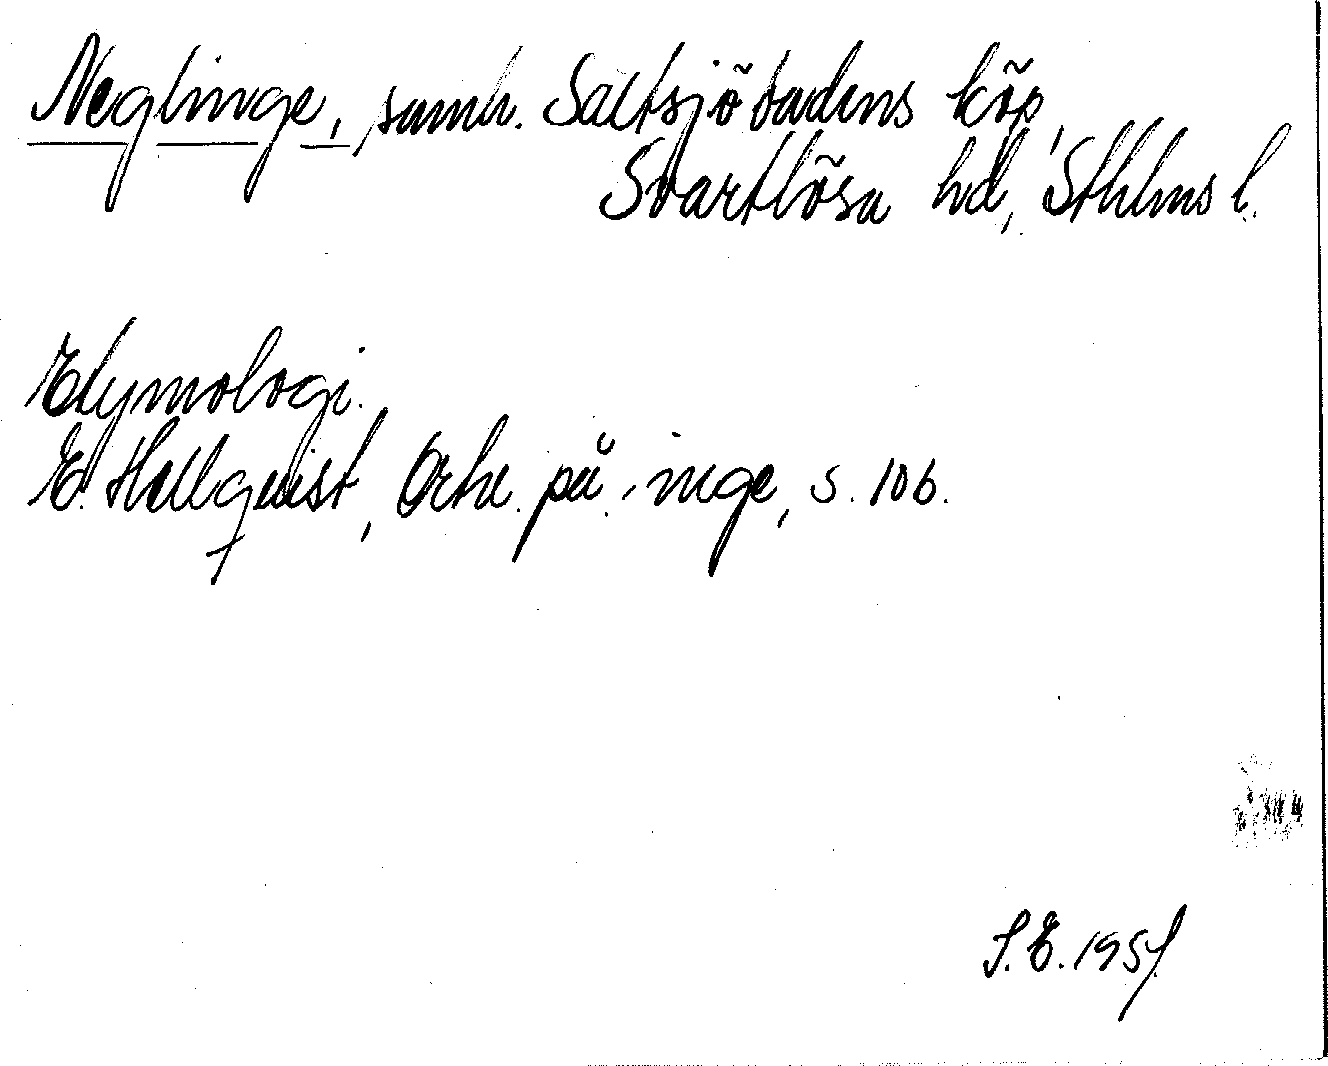 Neglinge, samh. Saltsjöbadens köp,
Svartlösa hd, Sthlms l.
Etymologi.
E. Hellquist, Ortn. på -inge, s. 106.
S.E. 195